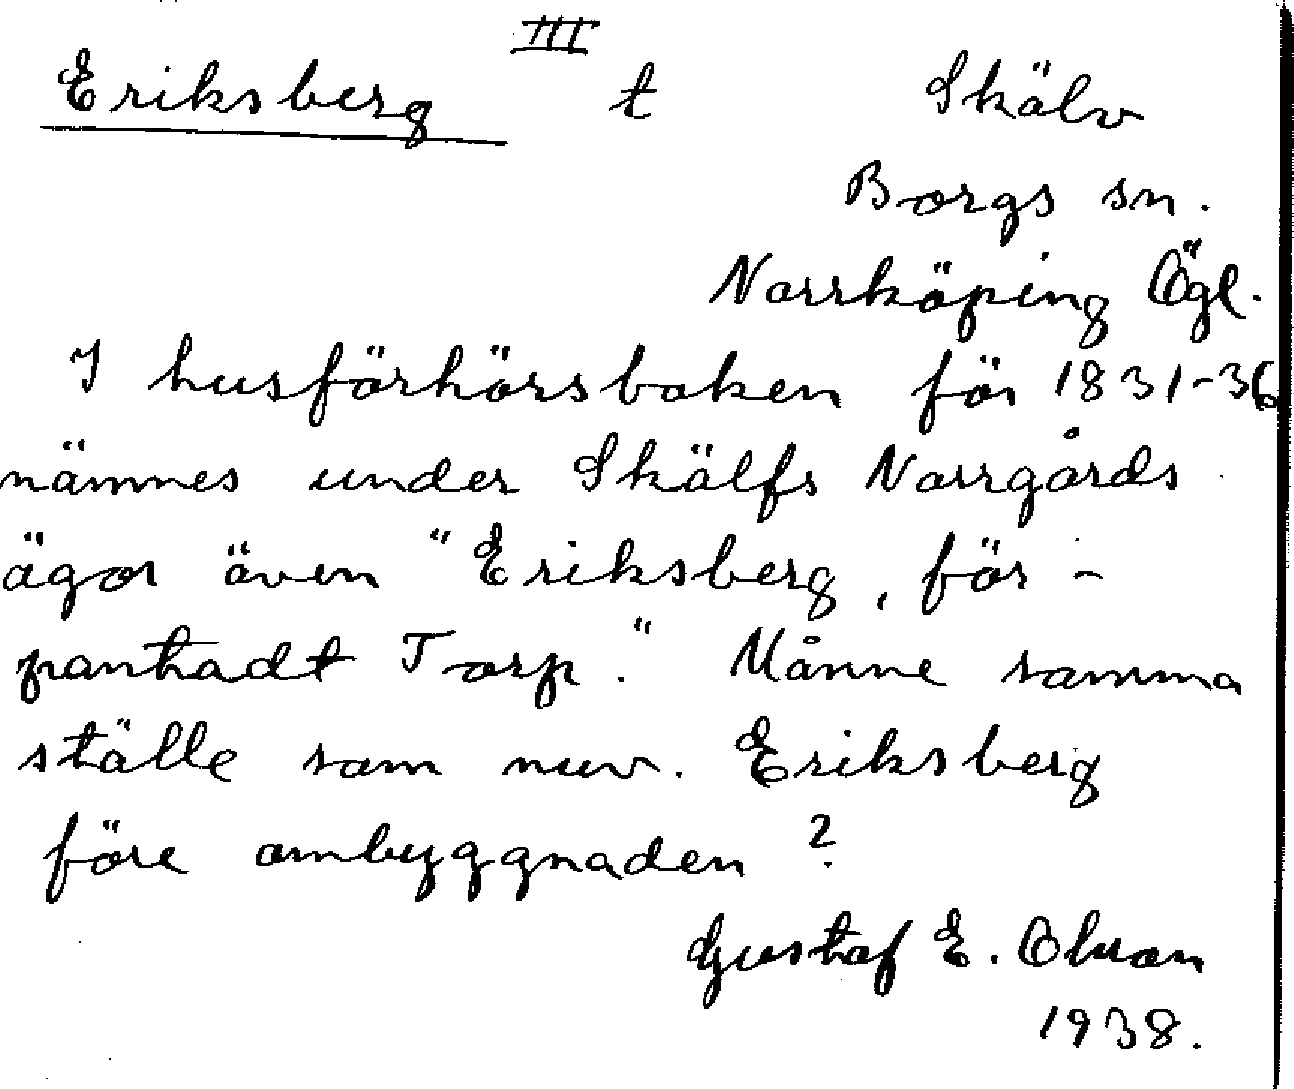 III
Eriksberg t Skälv
Borgs sn.
Norrköping Ögl.
I husförhörsboken för 1831-36
nämnes under Skälfs Norrgårds
ägor även "Eriksberg, för-
panthadt Torp." Månne samma
ställe som nuv. Eriksberg
före ombyggnaden?
Gustaf E. Olson
1938.